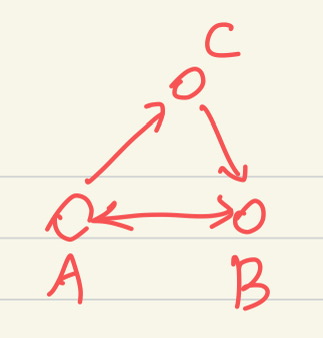 C
A B